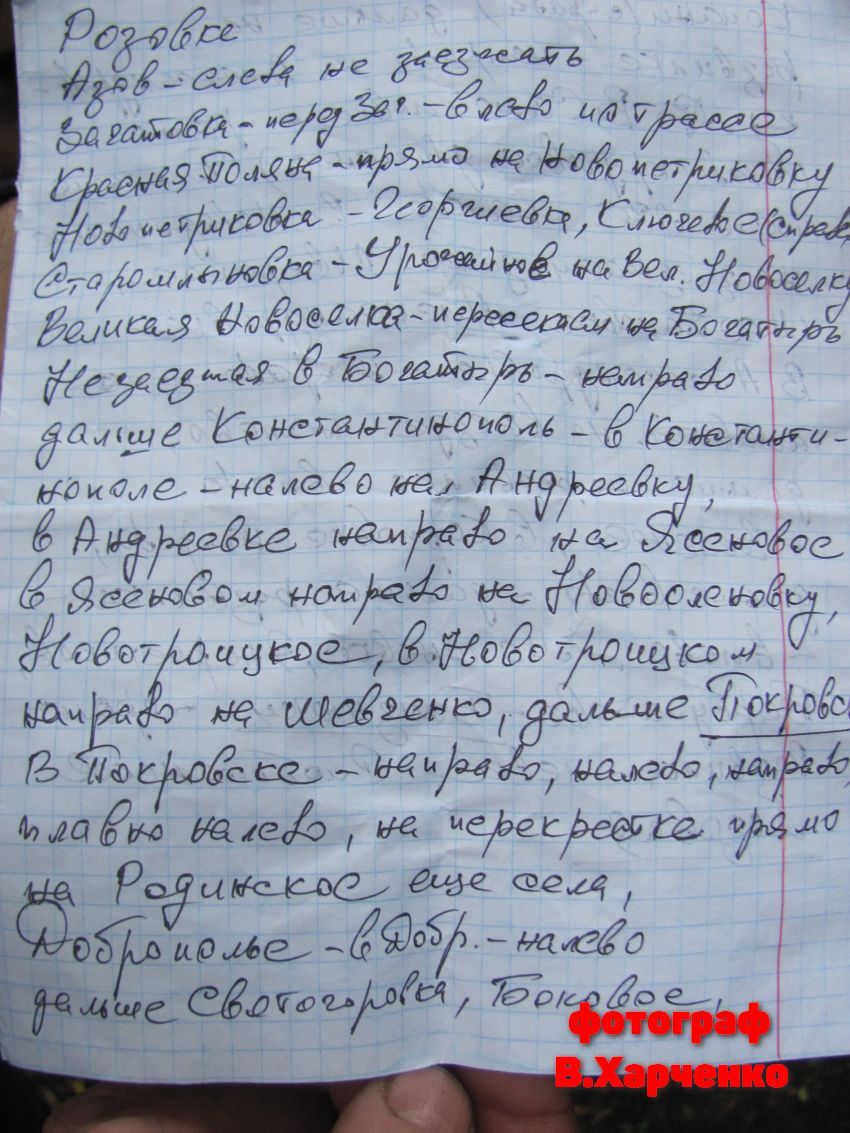 Розовке
Азов - слева не заезжать
Зачатовка - перед Зач. - влево по трассе
Красная Поляна - прямо на Новопетриковку
Новопетриковка - Георгиевка, Ключевое (справа
Старомлыновка - Урожайное на Вел. Новоселку
Великая Новоселка - пересекаем на Богатырь
Не заезжая в Богатырь - направо
дальше Константинополь - в Константи-
нополе - налево на Андреевку,
в Андреевке направо на Ясеновое
в Ясеновом направо на Новооленовку,
Новотроицкое, в Новотроицком
направо на Шевченко, дальше Покровс
В Покровске - направо, налево, направо,
плавно налево, на перекрестке прямо
на Родинское еще села,
Доброполье - в Добр. - налево
дальше Святогоровка, Боковое,
фотограф
В.Харченко